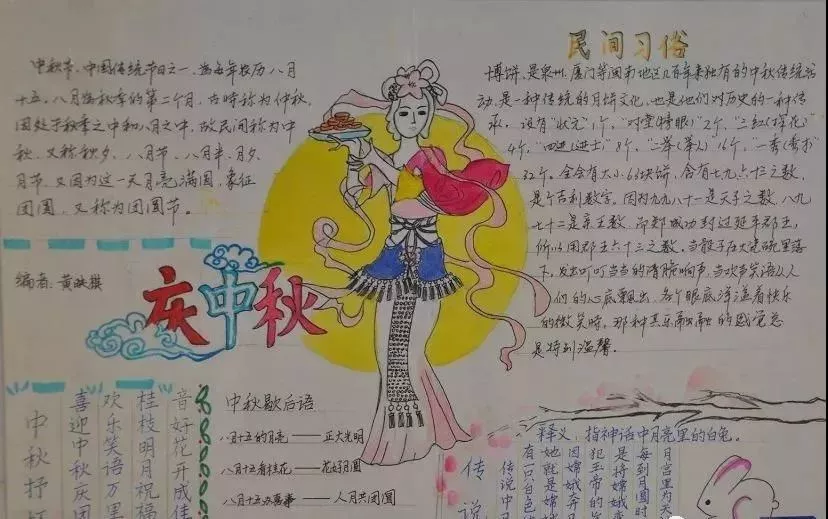 中秋节,中国传统节日之一,为每年农历八月
十五,八月为秋季的第二个月,古时称为仲秋,
因处于秋季之中和八月之中,故民间称为中
秋,又称秋夕、八月节、八月半、月夕、
月节,又因为这一天月亮满圆,象征
团圆,又称为团圆节。
编者:黄映祺
庆中秋
民间习俗
博饼,是泉州、厦门等闽南地区几百年来独有的中秋传统活
动,是一种传统的月饼文化,也是他们对历史的一种传
承。设有“状元”1个,“对堂(榜眼)”2个,“三红(探花)”
4个,“四进(进士)”8个,“二举(举人)”16个,“一秀(秀才)
32个。全会有大小63块饼,含有七九六十三之数,
是个吉利数字。因为九九八十一是天子之数,八九
七十二是亲王数,而郑成功封过延平郡王,
所以用郡王六十三之数。当骰子在大瓷碗里落
下,发出叮叮当当的清脆响声,当欢声笑语从人
们的心底飘出,各个眼底洋溢着快乐
的微笑时,那种其乐融融的感觉总
是特别温馨。
中秋歇后语
八月十五的月亮——正大光明
八月十五看桂花——花好月圆
八月十五办喜事——人月共团圆
音好花开成佳
桂枝明月祝福
欢乐笑语万里
喜迎中秋庆团
中秋抒
释义:指神话中月亮里的白兔。
月宫里为天
每到月圆时
是将嫦娥
犯玉帝的
因嫦娥奔
她就是嫦
有一只白色
传说中
传说